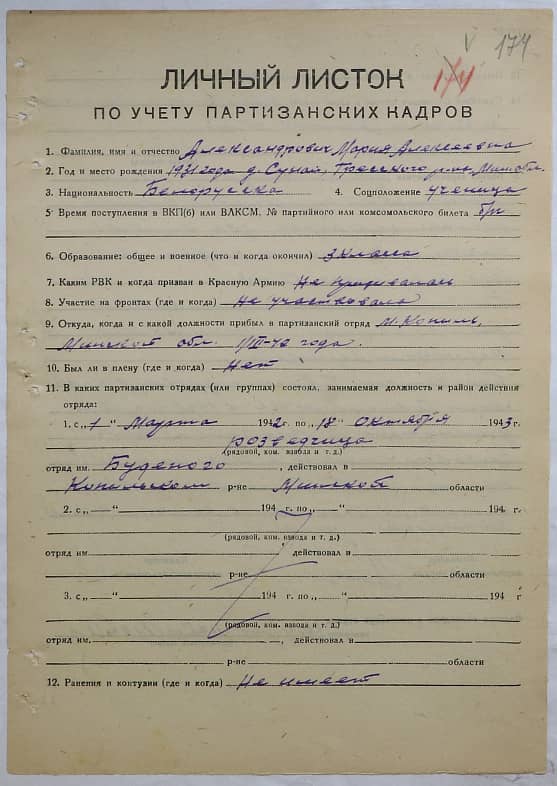 V 174
174
ЛИЧНЫЙ ЛИСТОК
ПО УЧЕТУ ПАРТИЗАНСКИХ КАДРОВ
1. Фамилия, имя и отчество Александрович Мария Алексеевна
2. Год и место рождения 1931 года д. Сунаи, р-на, Мин. обл.
3. Национальность Белорусска 4. Соцположение ученица
5. Время поступления в ВКП(б) или ВЛКСМ, № партийного или комсомольского билета б/п
6. Образование: общее и военное (что и когда окончил) 3 класса
7. Каким РВК и когда призван в Красную Армию Не призывалась
8. Участие на фронтах (где и когда) Не участвовала
9. Откуда, когда и с какой должности прибыл в партизанский отряд м. Копыль,
Минской обл. 1/III-42 года.
10. Был ли в плену (где и когда) Нет
11. В каких партизанских отрядах (или группах) состоял, занимаемая должность и район действия
отряда:
1. с „1“ Марта 1942 г. по „18“ октября 1943 г.
розведчица
(рядовой, ком. взвода и т. д.)
отряд им. Буденого, действовал в
Копыльском р-не Минской области
2. с „ “ 194 г. по „ “ 194 г.
(рядовой, ком. взвода и т. д.)
отряд им. действовал в
р-не области
3. с „ “ 194 г. по „ “ 194 г
(рядовой, ком. взвода и т. д.)
отряд им. , действовал в
р-не области
12. Ранения и контузии (где и когда) Не имеет